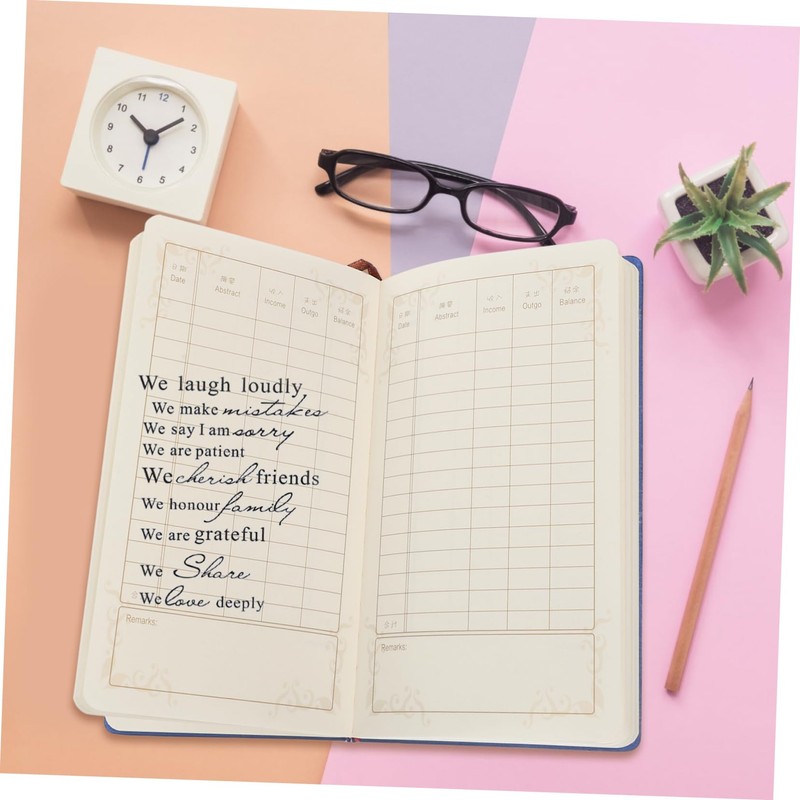 11 12 1
10 2
9 3
8 4
7 6 5
Date Abstract Income Outgo Balance
We laugh loudly,
We make mistakes
We say I am sorry
We are patient
We cherish friends
We honour family
We are grateful
We Share
We love deeply
Remarks:
Date Abstract Income Outgo Balance
合计
Remarks: